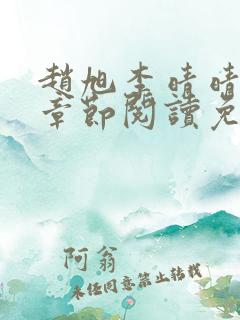 趙旭李晴晴
章節閱讀免
阿翁
未經同意禁止轉載